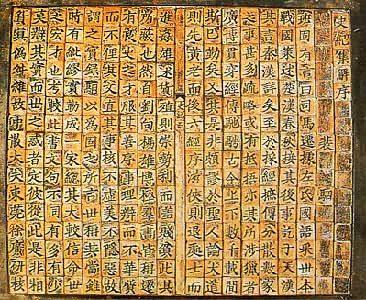 史紀集解序
裴駰
班固有言曰司馬遷據左氏國語采世本
戰國策述楚漢春秋接其後事訖于天漢
其言秦漢詳矣至於採經摭傳分散數家
之事甚多疏略或有抵捂亦其所涉獵者
廣博貫穿經傳馳騁古今上下數千載間
斯已勤矣又其是非頗謬於聖人論大道
則先黃老而後六經序游俠則退處士而
進姦雄述貨殖則崇勢利而羞賤貧此其
所蔽也然自劉向楊雄博極羣書皆稱遷
有良史之才服其善序事理辯而不華質
而不俚其文直其事核不虛美不隱惡故
謂之實錄駰以為固之所言世稱其當雖
時有紕繆實勒成一家總其大較信命世
之宏才也考較此書文句不同有多有少
莫辯其實而世之惑者定彼從此是非相
貿真偽舛雜故中散大夫東莞徐廣研核